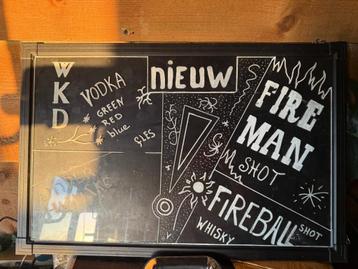 WKD
VODKA
GREEN
RED
blue
fles
nieuw
FIRE
MAN
SHOT
FiREBALL SHOT
WHISKY